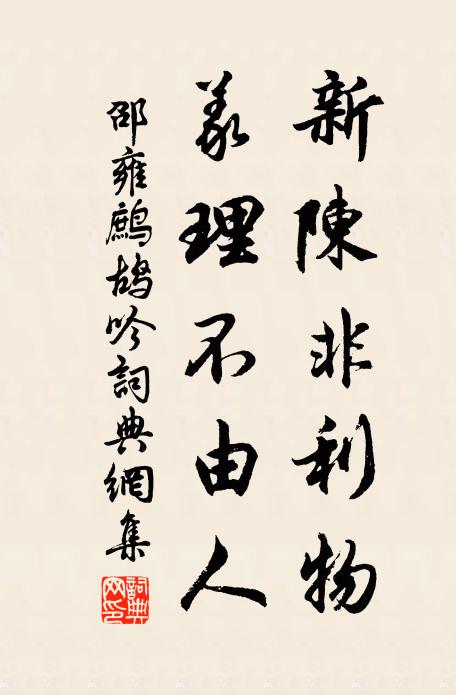 新陳非利物
義理不由人
邵雍鷓鴣吟詞典網集
詞典網印